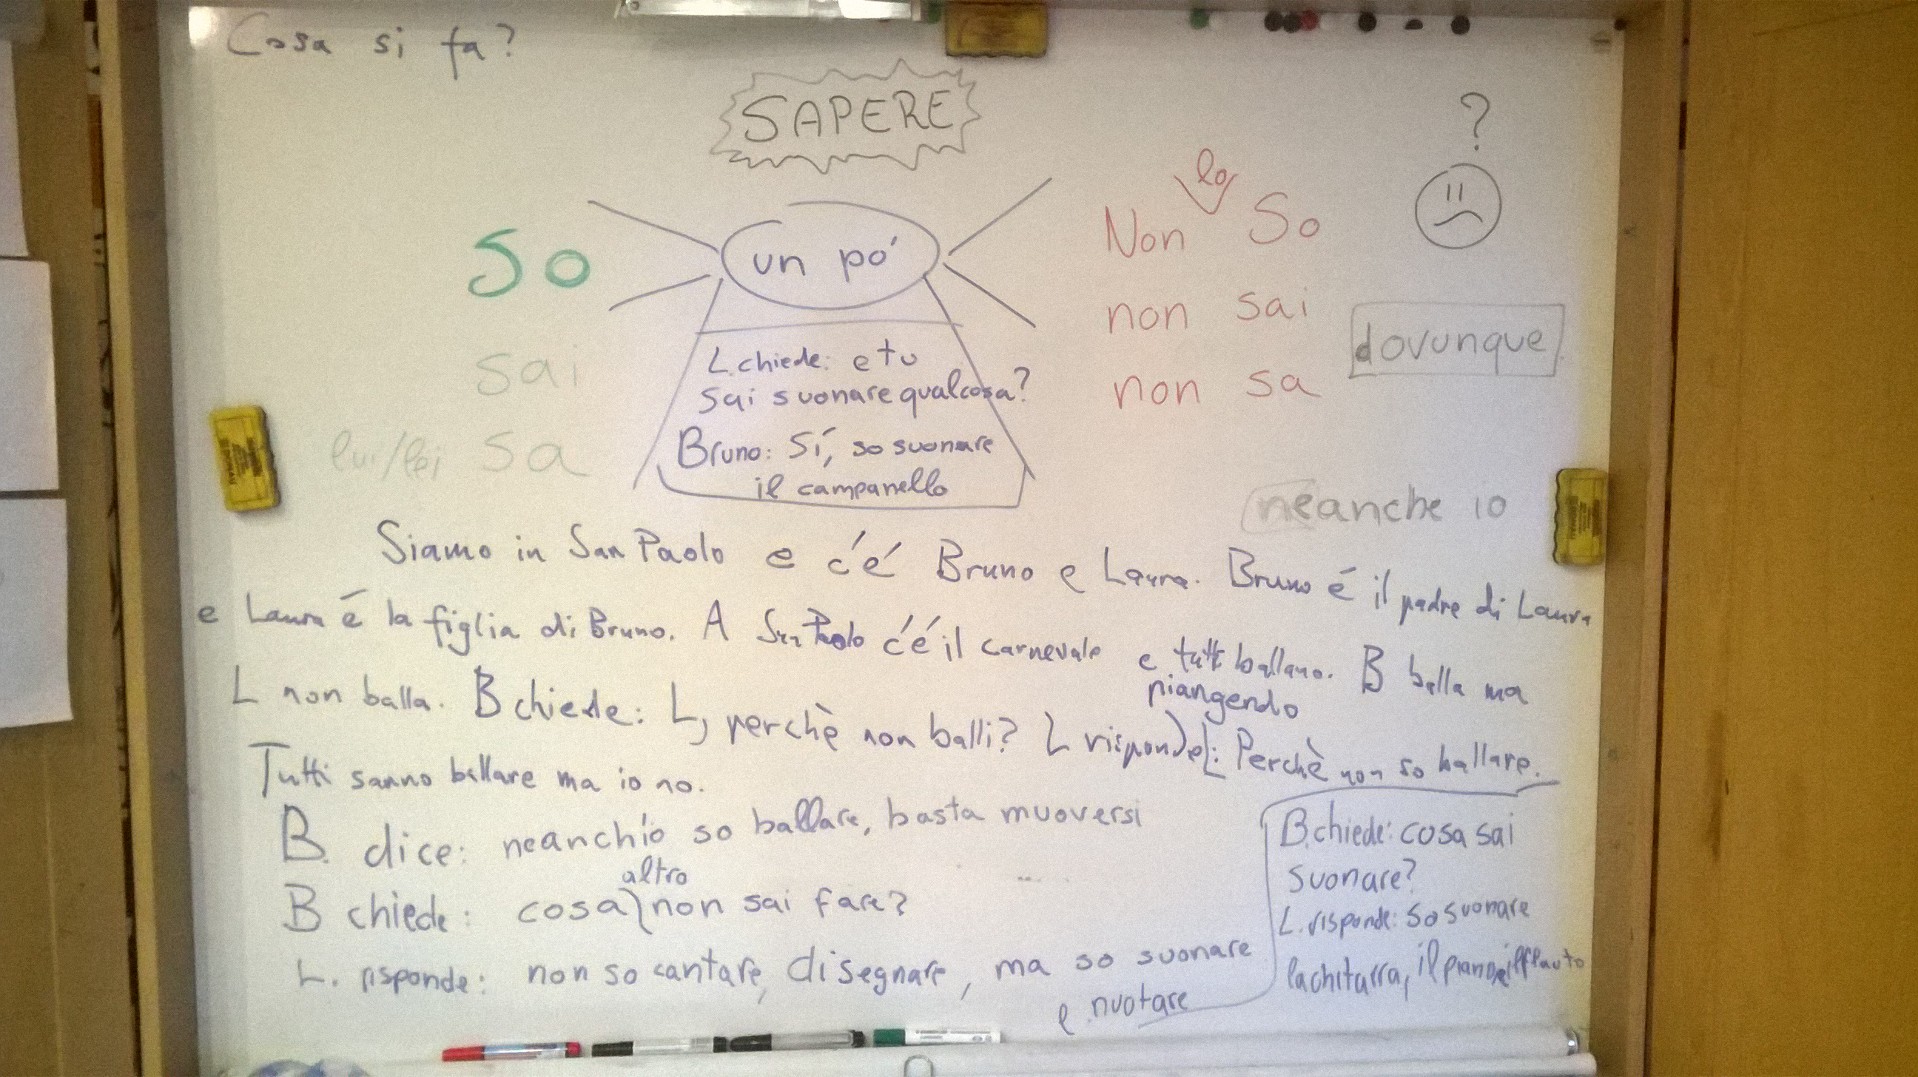 Cosa si fa?
SAPERE
?
So
un po'
Non lo So
sai
non sai
dovunque
lui/lei sa
non sa
L. chiede: e tu
sai suonare qualcosa?
Bruno: Sí, so suonare
il campanello
neanche io
Siamo in San Paolo e c'é Bruno e Laura. Bruno é il padre di Laura
e Laura é la figlia di Bruno. A San Paolo c'é il carnevale e tutti ballano. B balla ma
L non balla. B chiede: L, perchè non balli? L risponde piangendo: Perchè non so ballare.
Tutti sanno ballare ma io no.
B. dice: neanch'io so ballare, basta muoversi
B chiede: cosa altro non sai fare?
L. risponde: non so cantare, disegnare, ma so suonare
e nuotare
B. chiede: cosa sai
suonare?
L. risponde: so suonare
la chitarra, il piano e il flauto